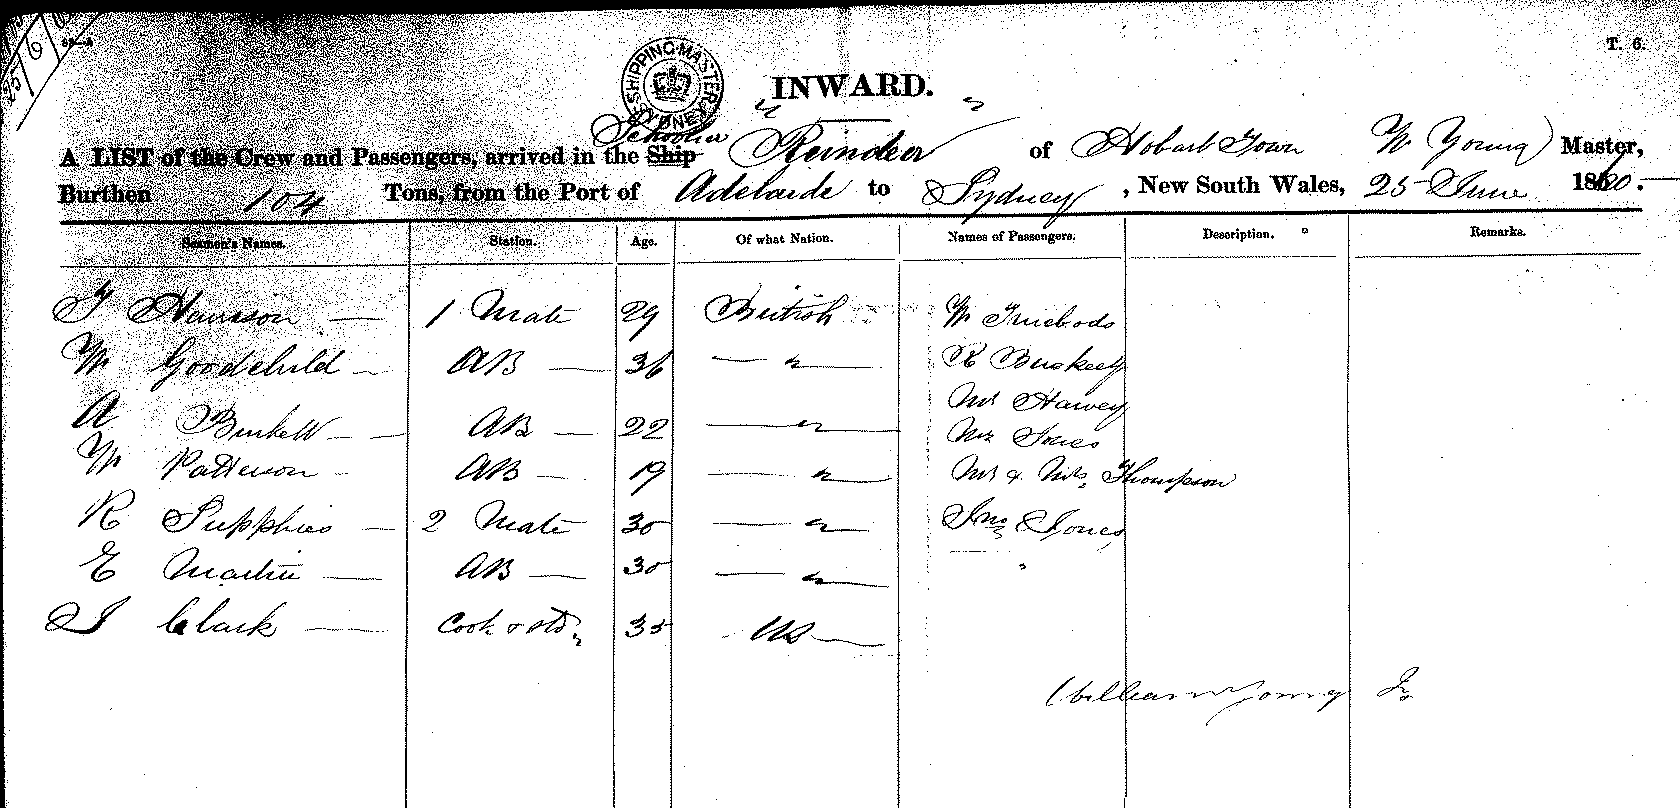 T. 6.
SHIPPING MASTER SYDNEY
INWARD.
Schooner
A LIST of the Crew and Passengers, arrived in the Ship "Reindeer" of Hobart Town W Young Master,
Burthen 104 Tons, from the Port of Adelaide to Sydney, New South Wales, 25 June 1860.
Seamen's Names. Station. Age. Of what Nation. Names of Passengers. Description. Remarks.
T Harrison — 1 Mate 29 British W
W Goodchild — AB — 36 — " — R
A Burkett — AB — 22 — " — Mr Harvey
Mr Jones
W Patterson — AB — 19 — " — Mr & Mrs Thompson
R — 2 Mate 30 — " — Jno Jones
E Martin — AB — 30 — " —
J Clark — Cook & Std 35 US —
William Young